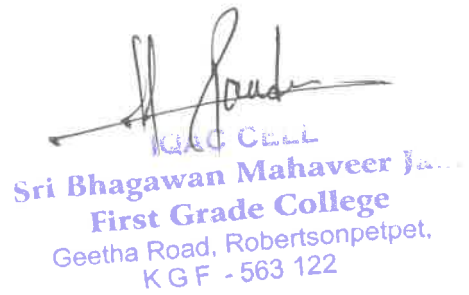 IQAC CELL
Sri Bhagawan Mahaveer
First Grade College
Geetha Road, Robertsonpetpet,
K G F - 563 122